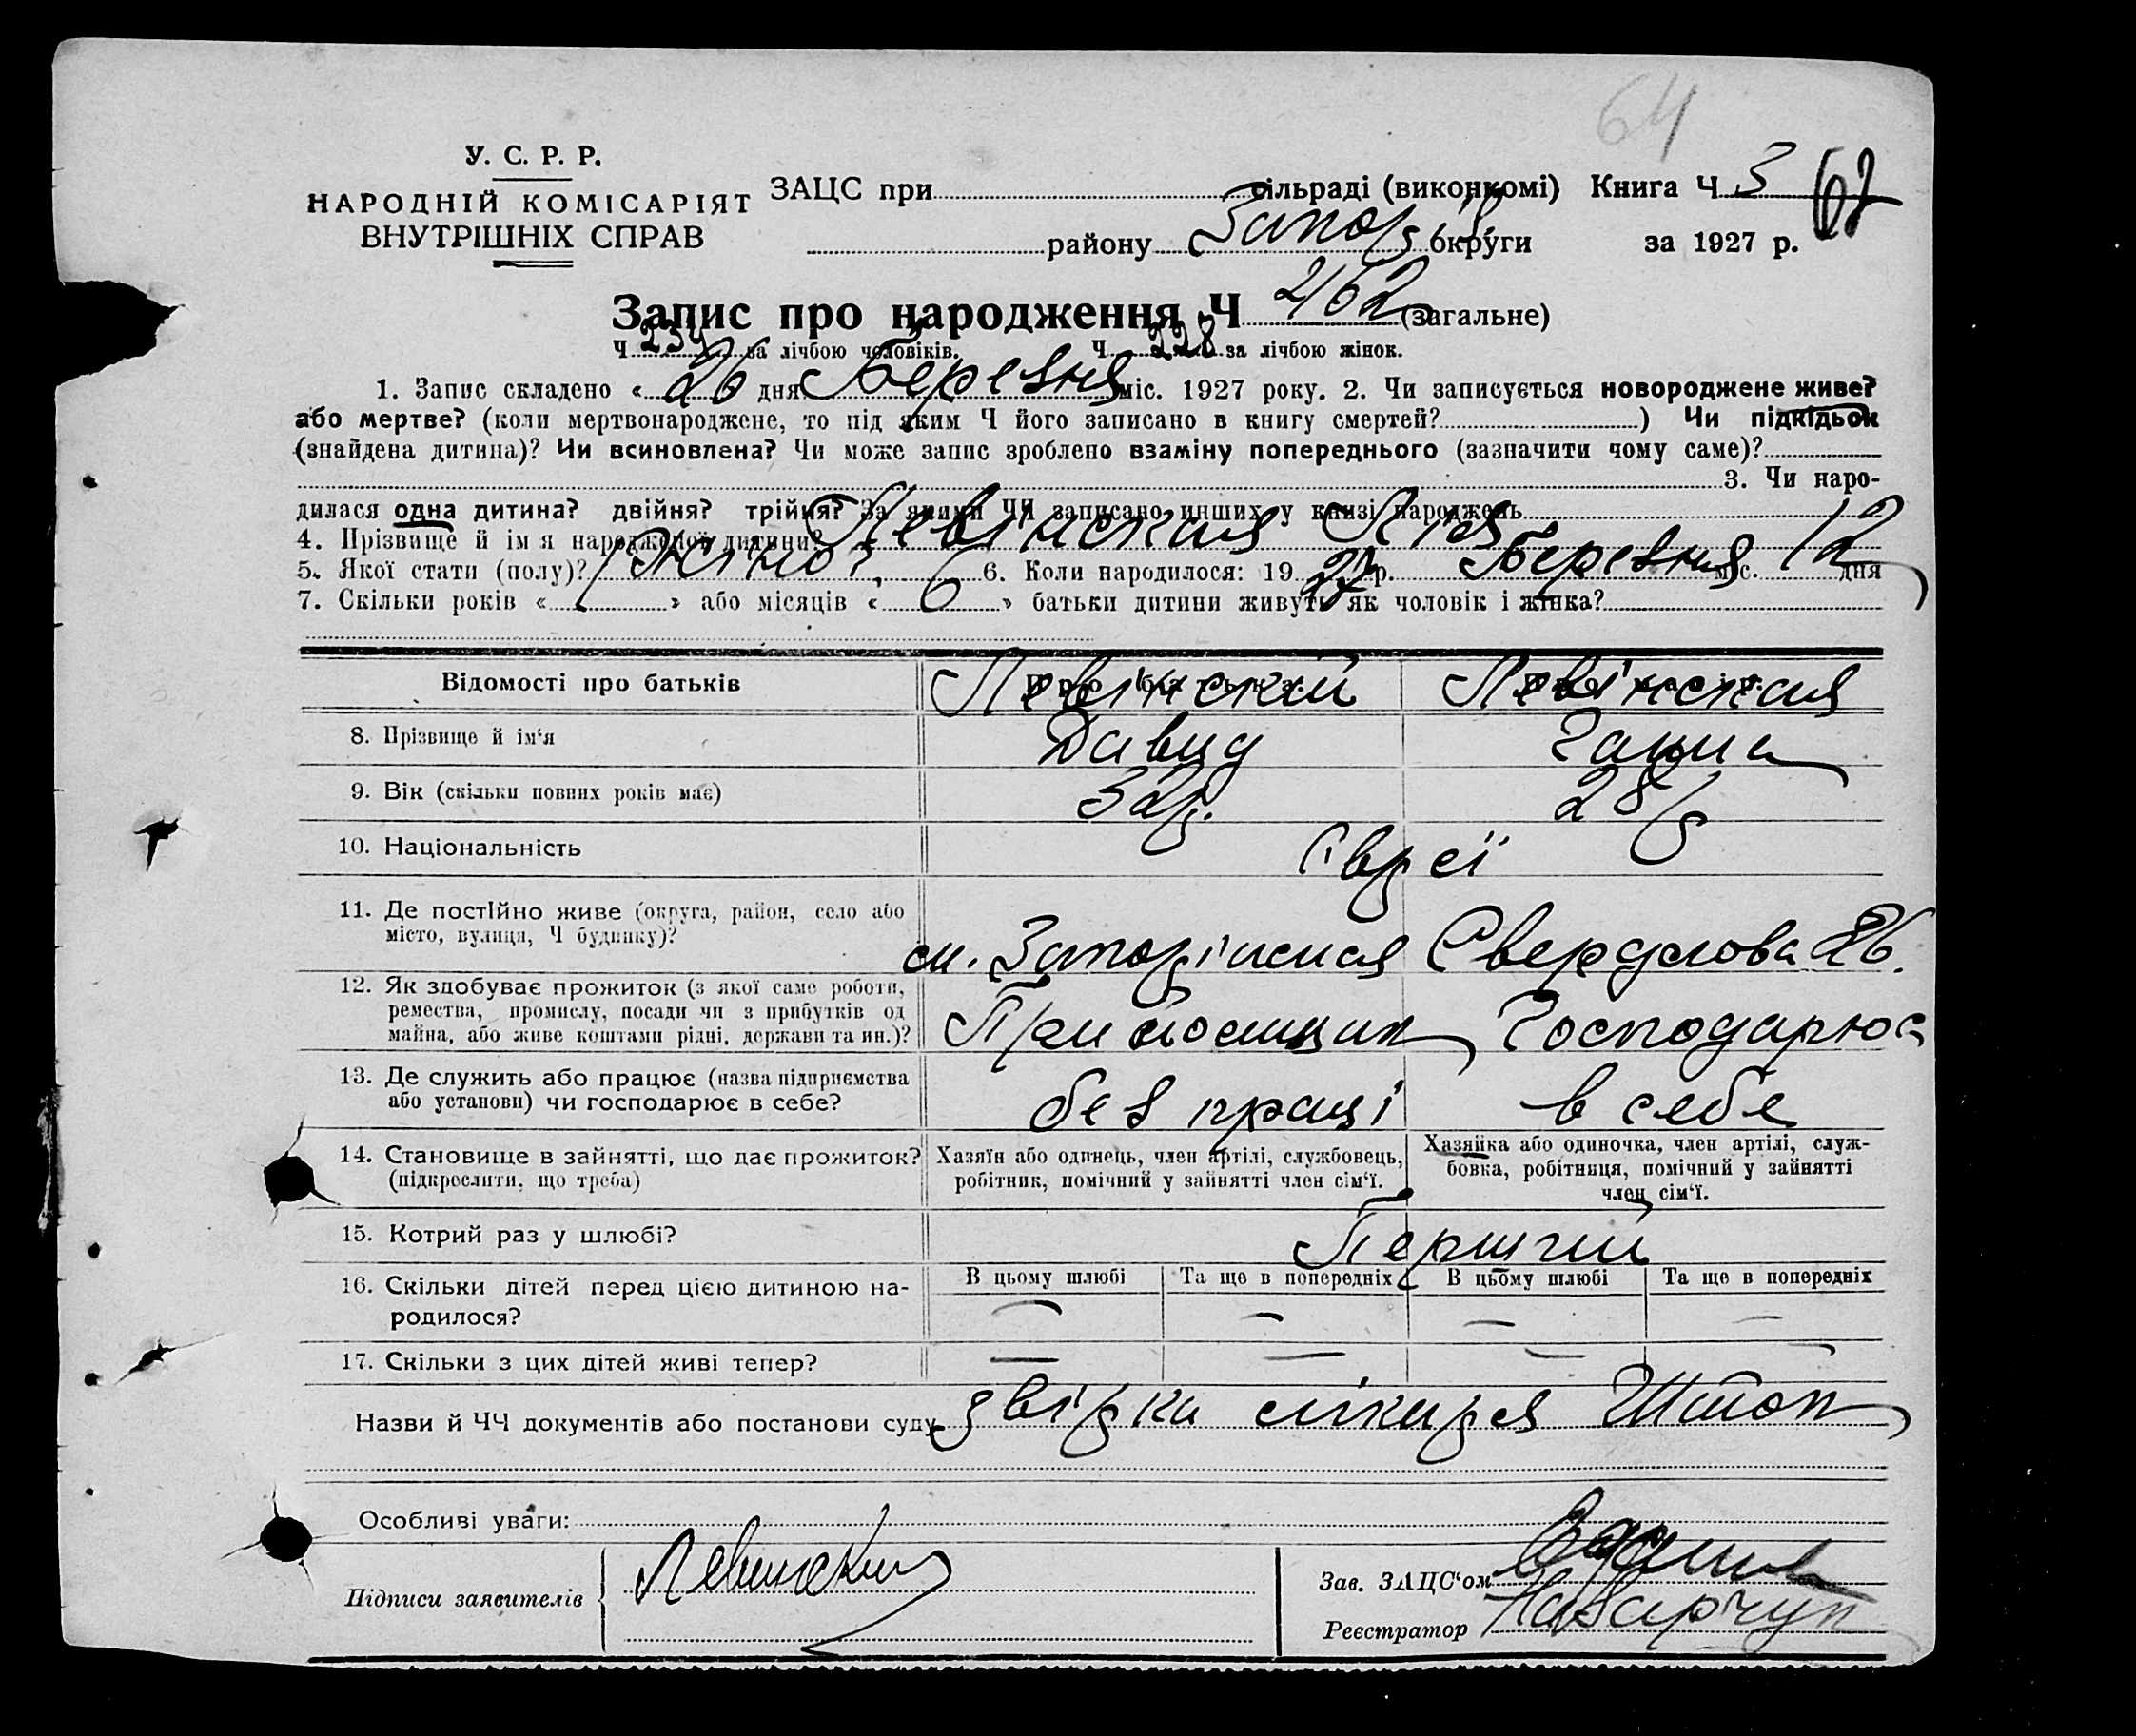 64
У. С. Р. Р.
НАРОДНІЙ КОМІСАРІЯТ
ВНУТРІШНІХ СПРАВ
ЗАЦС при сільраді (виконкомі) Книга Ч 3 62
району Запор округи за 1927 р.
Запис про народження Ч 462 (загальне)
Ч 234 за лічбою чоловіків. Ч 228 за лічбою жінок.
1. Запис складено « 26 дня Березня міс. 1927 року. 2. Чи записується новороджене живе?
або мертве? (коли мертвонароджене, то під яким Ч його записано в книгу смертей? ) Чи підкідьок
(знайдена дитина)? Чи всиновлена? Чи може запис зроблено взаміну попереднього (зазначити чому саме)?
3. Чи наро-
дилася одна дитина? двійня? трійня? За якими ЧЧ записано инших у книзі народжень
4. Прізвище й ім я народженої дитини? Левінская
5. Якої стати (полу)? Жіно 6. Коли народилося: 19 27 р. Березня міс. 12 дня
7. Скільки років « » або місяців « 6 » батьки дитини живуть як чоловік і жінка?
Відомості про батьків Левінский Левінская
8. Прізвище й ім‘я Давид Ганна
9. Вік (скільки повних років має) 32р. 28р
10. Національність Євреї
11. Де постійно живе (округа, район, село або
місто, вулиця, Ч будинку)?
м. Запоріжжя Свердлова 26.
12. Як здобуває прожиток (з якої саме роботи,
ремества, промислу, посади чи з прибутків од
майна, або живе коштами рідні, держави та ин.)?
Господарює
13. Де служить або працює (назва підприємства
або установи) чи господарює в себе?
без праці в себе
14. Становище в зайнятті, що дає прожиток?
(підкреслити, що треба)
Хазяїн або одинець, член артілі, службовець,
робітник, помічний у зайнятті член сім‘ї.
Хазяйка або одиночка, член артілі, служ-
бовка, робітниця, помічний у зайнятті
член сім‘ї.
15. Котрий раз у шлюбі? Перший
16. Скільки дітей перед цією дитиною на-
родилося?
В цьому шлюбі Та ще в попередніх В цьому шлюбі Та ще в попередніх
— — — —
17. Скільки з цих дітей живі тепер? — — — —
Назви й ЧЧ документів або постанови суду лікаря
Особливі уваги:
Підписи заявителів Левинский
Зав. ЗАЦС‘ом
Реєстратор